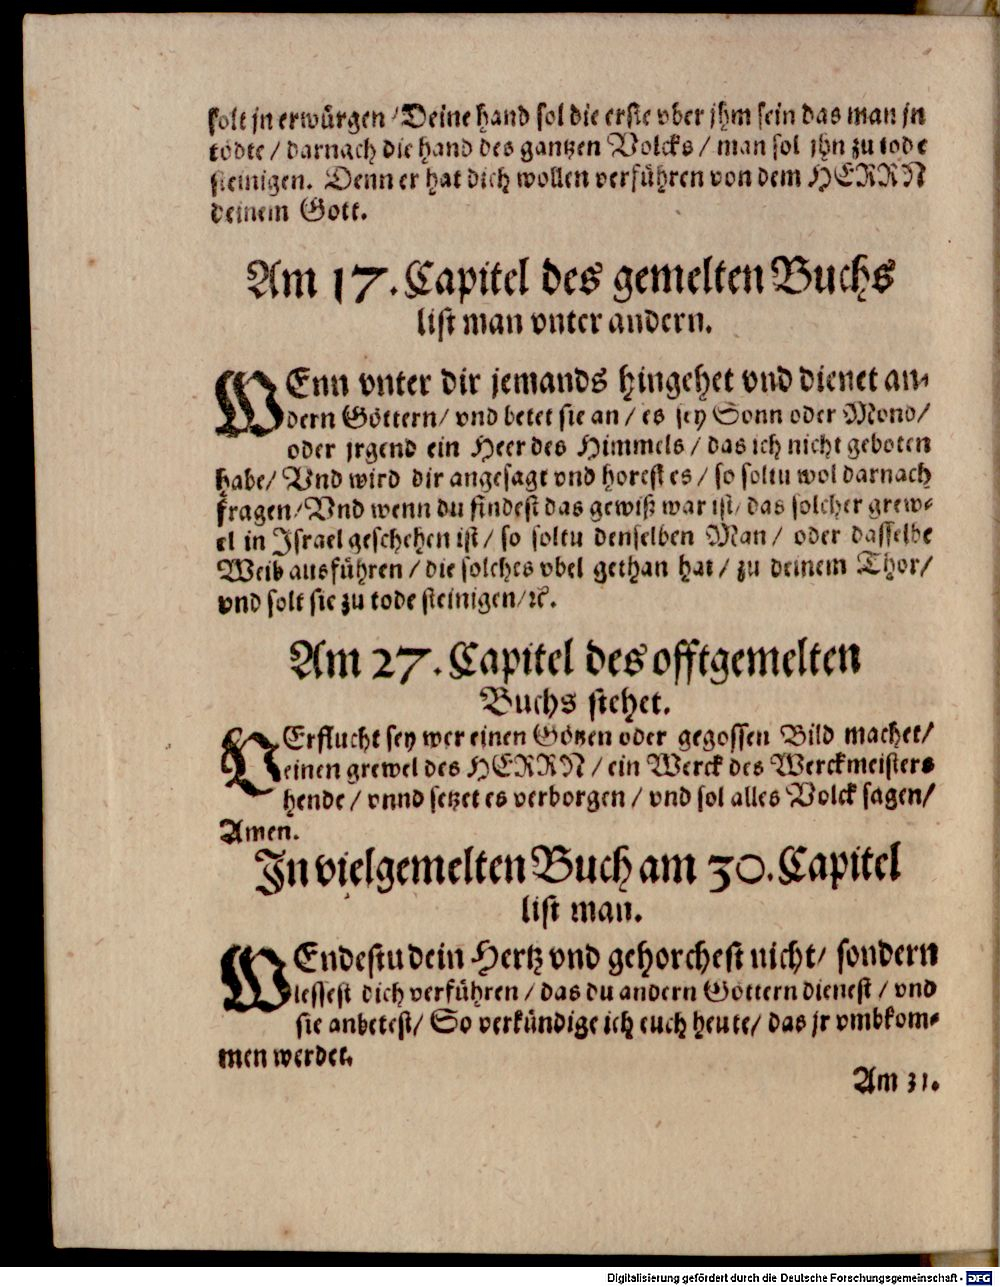 solt jn erwürgen / Deine hand sol die erste vber jhm sein das man jn
tödte / darnach die hand des gantzen Volcks / man sol jhn zu tode
steinigen. Denn er hat dich wollen verführen von dem HERRN
deinem Gott.
Am 17. Capitel des gemelten Buchs
list man vnter andern.
WEnn vnter dir jemands hingehet vnd dienet an-
dern Göttern / vnd betet sie an / es sey Sonn oder Mond /
oder jrgend ein Heer des Himmels / das ich nicht geboten
habe / Vnd wird dir angesagt vnd hörest es / so soltu wol darnach
fragen / Vnd wenn du findest das gewiß war ist / das solcher grew-
el in Israel geschehen ist / so soltu denselben Man / oder dasselbe
Weib ausführen / die solches vbel gethan hat / zu deinem Thor /
vnd solt sie zu tode steinigen / ꝛc.
Am 27. Capitel des offtgemelten
Buchs stehet.
VErflucht sey wer einen Götzen oder gegossen Bild machet /
einen grewel des HERRN / ein Werck des Werckmeisters
hende / vnnd setzet es verborgen / vnd sol alles Volck sagen /
Amen.
In vielgemelten Buch am 30. Capitel
list man.
WEndestu dein Hertz vnd gehorchest nicht / sondern
lessest dich verführen / das du andern Göttern dienest / vnd
sie anbetest / So verkündige ich euch heute / das jr vmbkom-
men werdet.
Am 31.
Digitalisierung gefördert durch die Deutsche Forschungsgemeinschaft - DFG